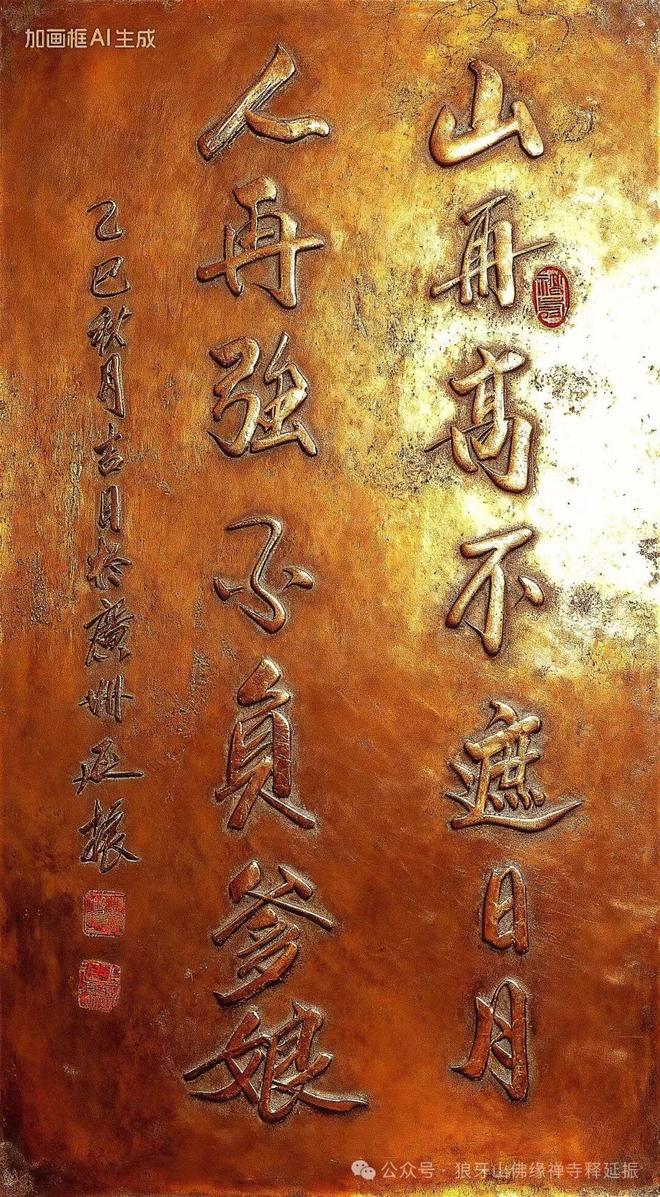 加画框AI生成
山再高不遮日月
人再強不負爹娘
乙巳秋月吉日於廣州延振
公众号·狼牙山佛缘禅寺释延振